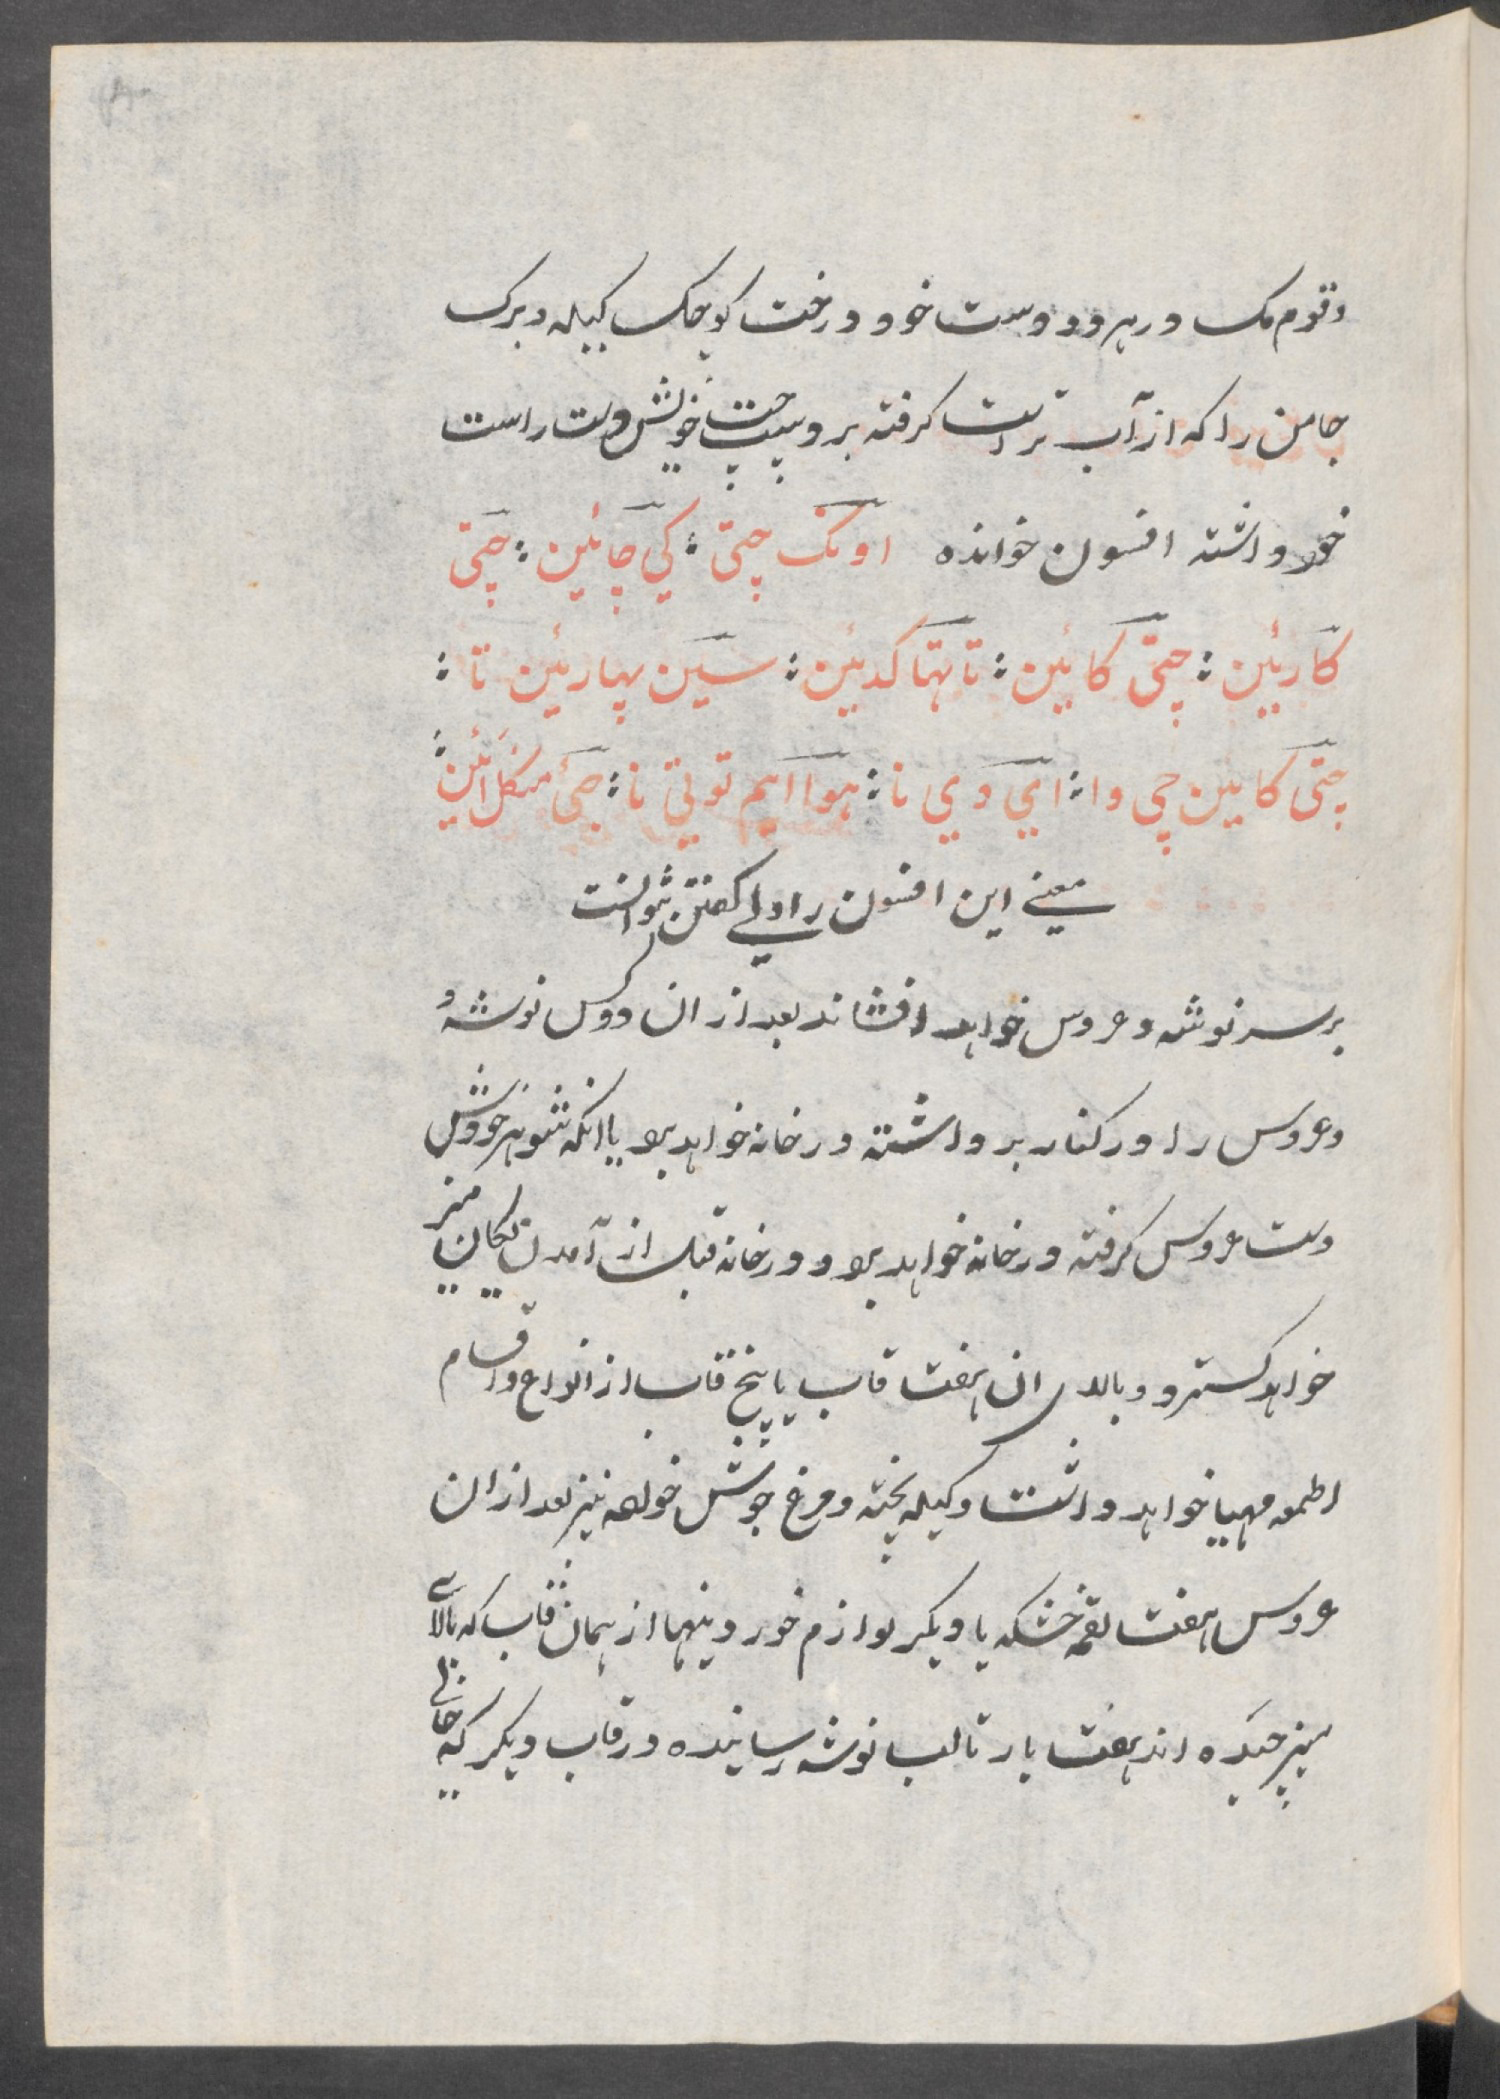 وقوم مک در هر دو دست خود درخت کوچک کیله و برک
جامن را که از آب تر است کرفته بر دست چپ خویش دست راست
خود داشته افسون خوانده اونک چتی : کی چائین : چتی
کاریئن : چتی کائین : تا تهتا کدیئن : سین پهاریئن تا :
چتی کایین چی وا : ایی دی نا : هوا ایم توتی نا : جی منکل ائین :
معنے این افسون را ولی کفتن نتوانست
بر سر نوشه و عروس خواهد افشاند بعد از ان دو کس نوشه و
و عروس را در کنار برداشته در خانه خواهد برد یا انکه شوهر خودش
دست عروس کرفته در خانه خواهد برد و در خانه قبل از آمدن یکان میز
خواهد کسترد و بالای ان هفت قاب یا پنج قاب از انواع و اقسام
اطعمه مهیا خواهد داشت و کیله پخته و مرغ جوش خواهد نیز بعد از ان
عروس هفت لقمه خشکه یا دیکر لوازم خوردنیها از همان قاب که بالاے
میز چیده اند هفت بار تا لب نوشه رسانیده در قاب دیکر که خالے